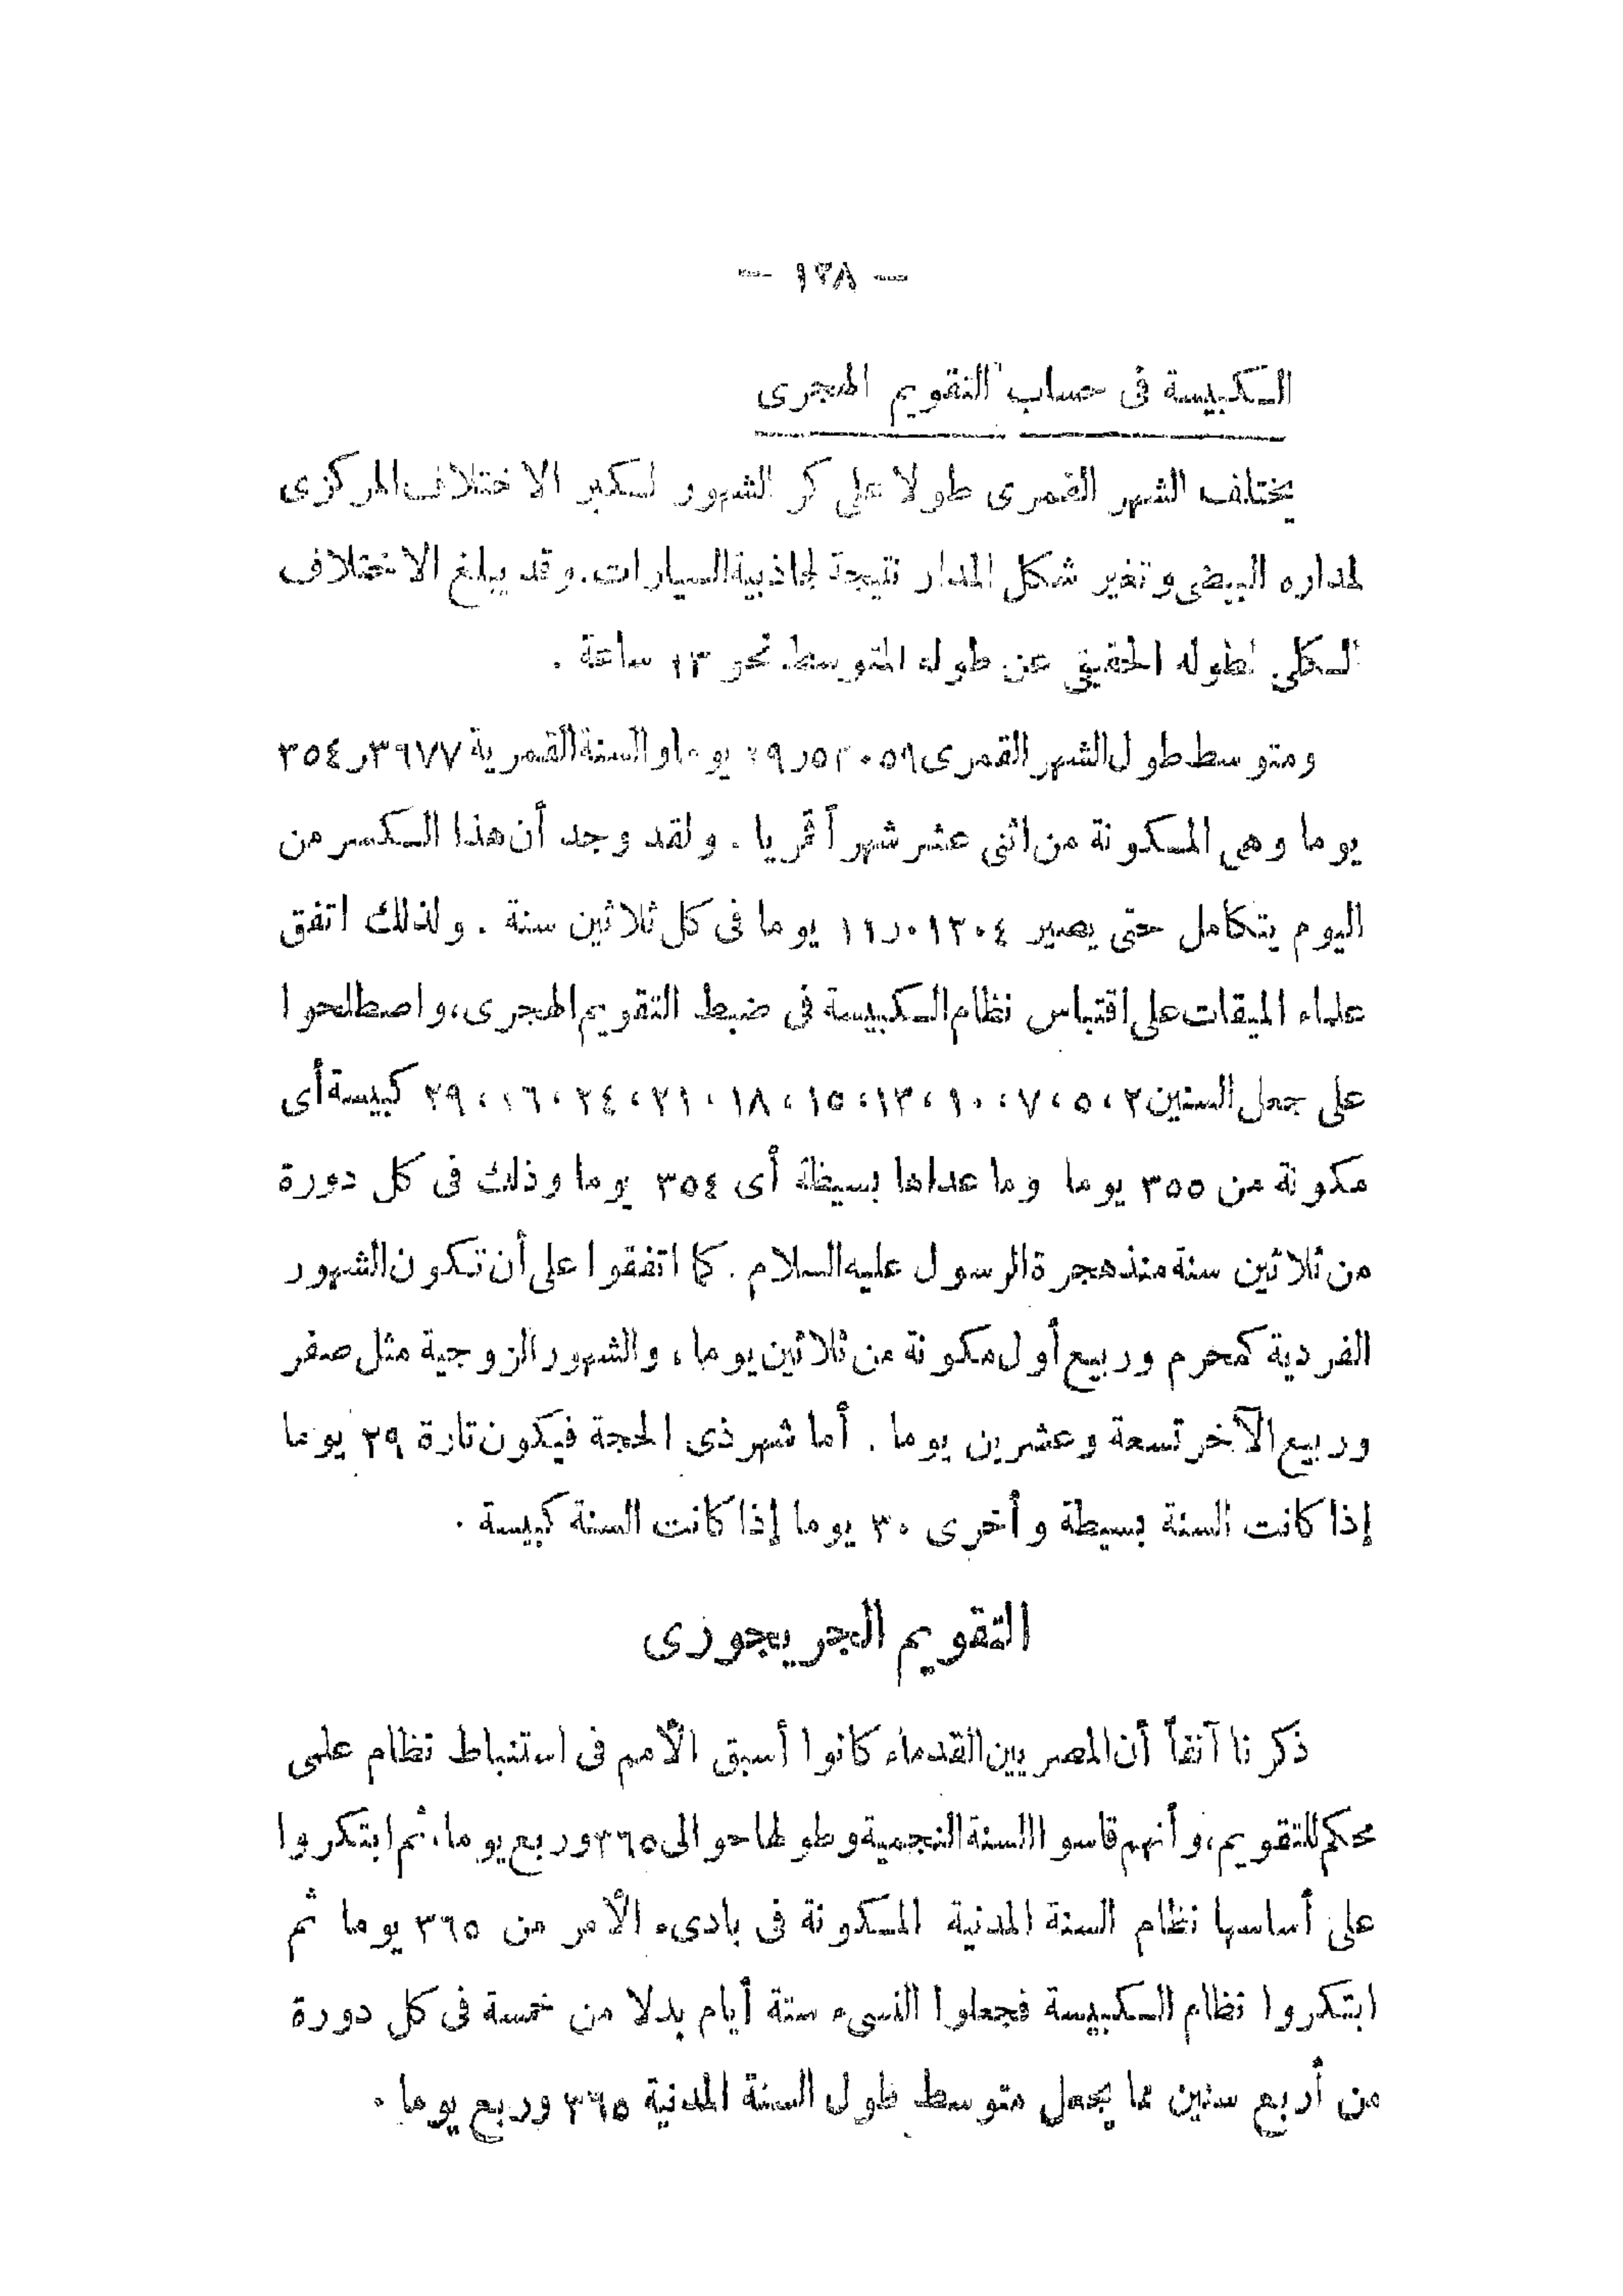 — ١٣٨ —
الكبيسة فى حساب التقويم الهجرى
يختلف الشهر القمرى طولا على كر الشهور لكبر الاختلاف المركزى
لمداره البيضى وتغير شكل المدار نتيجة لجاذبية السيارات. وقد يبلغ الاختلاف
الكلى لطوله الحقيقى عن طوله المتوسط نحو ١٣ ساعة .
ومتوسط طول الشهر القمرى ٥٣٠٥٩ر٢٩ يوما والسنة القمرية ٣٩٧٧ر٣٥٤
يوما وهى المكونة من اثنى عشر شهرأ قمريا . ولقد وجد أن هذا الكسر من
اليوم يتكامل حتى يصير ٠١٣٠٤ر١١ يوما فى كل ثلاثين سنة . ولذلك اتفق
علماء الميقات على اقتباس نظام الكبيسة فى ضبط التقويم الهجرى، واصطلحوا
على جعل السنين ٢ ، ٥ ، ٧ ، ١٠ ، ١٣ ، ١٥ ، ١٨ ، ٢١ ، ٢٤ ، ٢٦ ، ٢٩ كبيسة أى
مكونة من ٣٥٥ يوما وما عداها بسيطة أى ٣٥٤ يوما وذلك فى كل دورة
من ثلاثين سنة منذ هجرة الرسول عليه السلام . كما اتفقوا على أن تكون الشهور
الفردية كمحرم وربيع أول مكونة من ثلاثين يوما ، والشهور الزوجية مثل صفر
وربيع الآخر تسعة وعشرين يوما . أما شهر ذى الحجة فيكون تارة ٢٩ يوما
إذا كانت السنة بسيطة وأخرى ٣٠ يوما إذا كانت السنة كبيسة .
التقويم الجريجورى
ذكرنا آنفاً أن المصريين القدماء كانوا أسبق الأمم فى استنباط نظام علمى
محكم للتقويم، وأنهم قاسوا السنة النجمية وطولها حوالى ٣٦٥ وربع يوما، ثم ابتكروا
على أساسها نظام السنة المدنية المكونة فى بادىء الأمر من ٣٦٥ يوما ثم
ابتكروا نظام الكبيسة فجعلوا النسىء ستة أيام بدلا من خمسة فى كل دورة
من أربع سنين مما يجعل متوسط طول السنة المدنية ٣٦٥ وربع يوما .